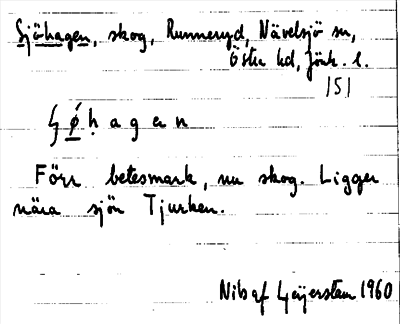 Sjöhagen, skog, Runneryd, Nävelsjö sn,
Östra hd, Jönk. l.
151
ʃǿ̱ḥagen
Förr betesmark, nu skog. Ligger
nära sjön Tjurken.
Nils af Geijerstam 1960